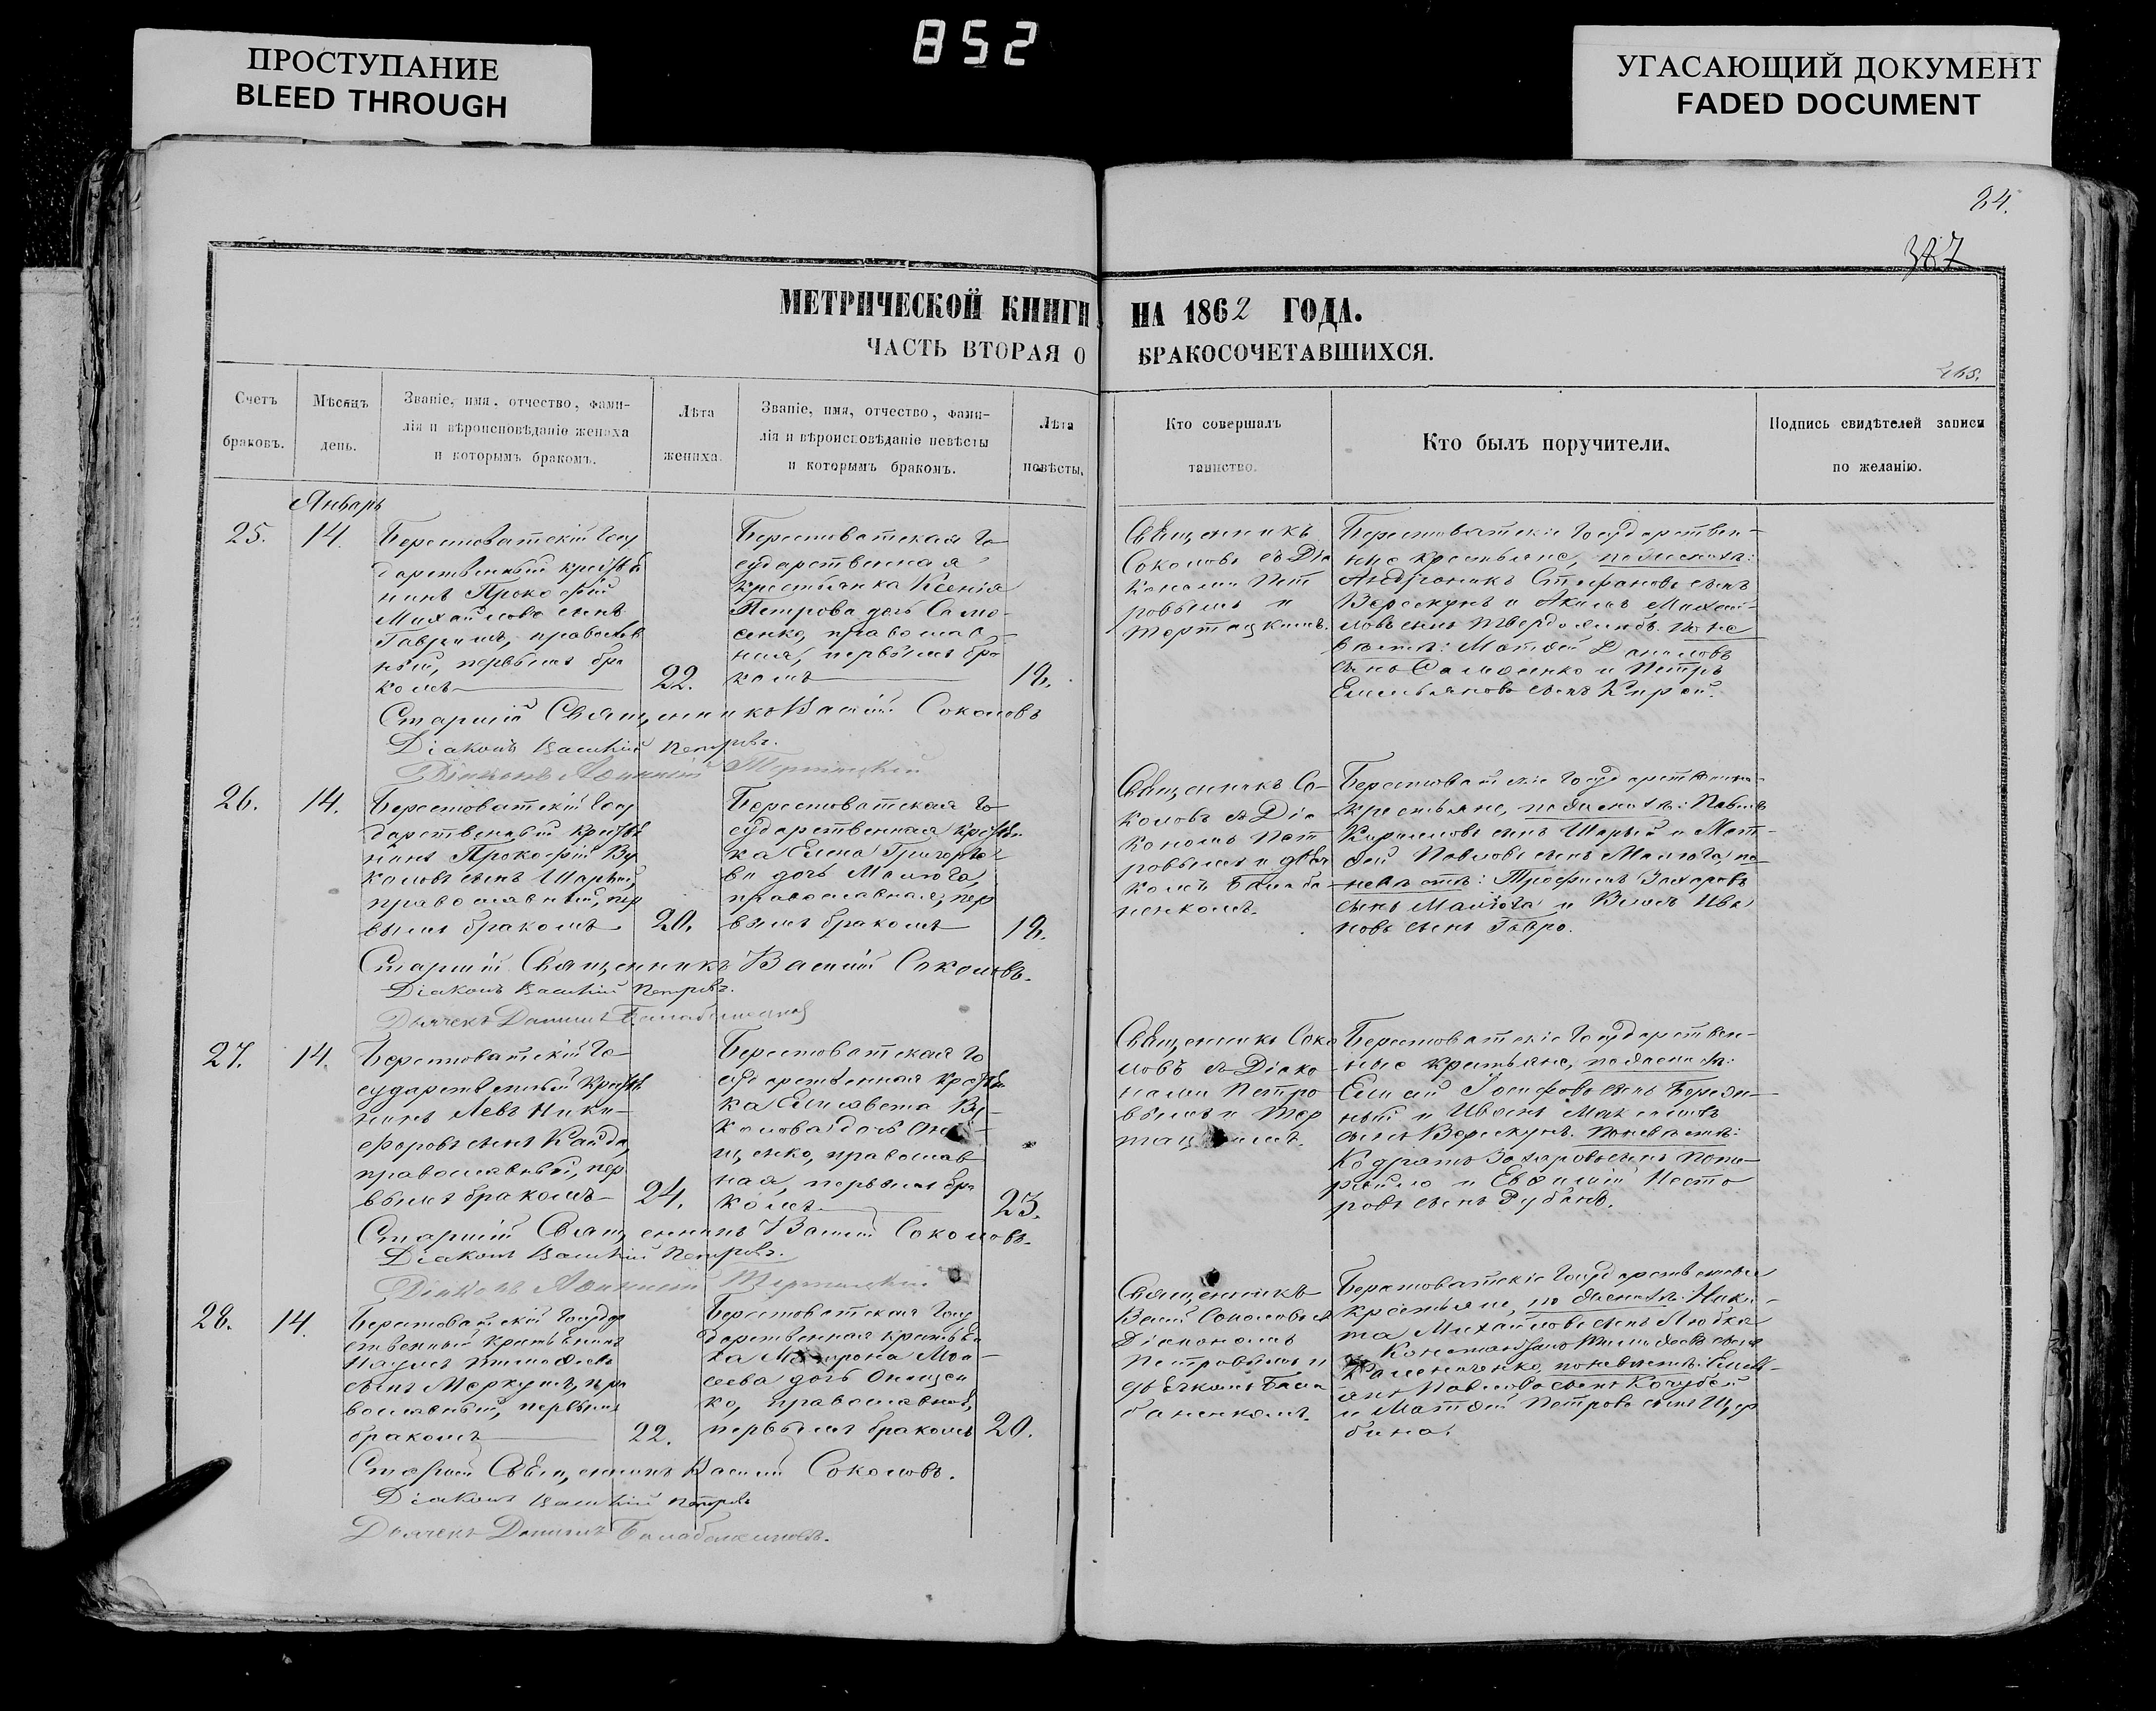 852
ПРОСТУПАНИЕ
BLEED THROUGH
УГАСАЮЩИЙ ДОКУМЕНТ
FADED DOCUMENT
24.
387
МЕТРИЧЕСКОЙ КНИГИ НА 1862 ГОДА.
ЧАСТЬ ВТОРАЯ О БРАКОСОЧЕТАВШИХСЯ.
Счетъ
браковъ.
Мѣсяцъ
день.
Званіе, имя, отчество, фами-
лія и вѣроисповѣданіе жениха
и которымъ бракомъ.
Лѣта
жениха.
Званіе, имя, отчество, фами-
лія и вѣроисповѣданіе невѣсты
и которымъ бракомъ.
Лѣта
невѣсты.
Кто совершалъ
таинство.
Кто былъ поручители.
Подпись свидѣтелей записи
по желанію.
Январь
25.
14.
Берестоватскій Госу
дарственный крестья
нинъ Прокофій
Михайловъ сынъ
православ
ный, первымъ бра
комъ
22.
Берестоватская Го
сударственная
крестьянка Ксенія
Петрова дочь Само-
енко, православ
ная, первымъ бра
комъ
18.
Священникъ
Соколовъ съ Діа
конами Пет
ровымъ и
Терпацкимъ.
Берестоватскіе Государствен-
ные крестьяне, по женихѣ:
Андроникъ Стефановъ сынъ
Верескунъ и Акимъ Михай-
ловъ сынъ по не
вѣстѣ: Матѳей Даниловъ
сынъ Самоенко и Петръ
Емельяновъ сынъ
Старшій Священникъ Василій Соколовъ
Діаконъ Василій Петровъ.
Діаконъ
26.
14.
Берестоватскій Госу
дарственный крестья
нинъ Прокофій Ву
коловъ сынъ Шарый,
православный, пер
вымъ бракомъ
20.
Берестоватская Го
сударственная крестьян
ка Елена Григорье
ва дочь Малюга,
православная, пер
вымъ бракомъ
18.
Священникъ Со-
коловъ съ Діа
кономъ Пет
ровымъ и дьяч
комъ Балаба
ненкомъ.
Берестоватскіе Государственные
крестьяне, по женихѣ: Павелъ
Кириловъ сынъ Шарый и Мат-
ѳей Павловъ сынъ Малюга, по
невѣстѣ: Трофимъ Захаровъ
сынъ Малюга и Ива
новъ сынъ
Старшій Священникъ Василій Соколовъ.
Діаконъ Василій Петровъ.
Дьячекъ Даніилъ
27.
14.
Берестоватскій Го
сударственный крестья
нинъ Левъ Ники-
форовъ сынъ Кайда,
православный, пер
вымъ бракомъ
24.
Берестоватская Го
сударственная крестьян
ка Елисавета Ву-
колова дочь Они-
щенко, православ
ная, первымъ бра
комъ
23.
Священникъ Соко
ловъ съ Діако
нами Петро
вымъ и Тер
Берестоватскіе Государствен-
ные крестьяне, по женихѣ:
Елисей Іосифовъ сынъ
и Иванъ
сынъ Верескунъ. По невѣстѣ:
Кодратъ Захаровъ сынъ
и Евѳимій Несто
ровъ сынъ Рубанъ.
Старшій Священникъ Василій Соколовъ.
Діаконъ Василій Петровъ.
Діаконъ
28.
14.
Берестоватскій Государ
ственный крестьянинъ
Наумъ Тимоѳеевъ
сынъ Меркуль, пра
вославный, первымъ
бракомъ
22.
Берестоватская Госу
дарственная крестьян
ка Мотрона Мои-
сеева дочь Онищен
ко, православная,
первымъ бракомъ
20.
Священникъ
Вас. Соколовъ съ
Діакономъ
Петровымъ и
дьячкомъ Бала
баненкомъ.
Берестоватскіе Государственные
крестьяне, по женихѣ: Ники-
та Михайловъ сынъ Любка
и Константинъ Тимоѳеевъ сынъ
по невѣстѣ: Емель-
янъ Павловъ сынъ Кочубей
и Матѳей Петровъ сынъ Щер
бина.
Старшій Священникъ Василій Соколовъ.
Діаконъ Василій Петровъ
Дьячекъ Даніилъ